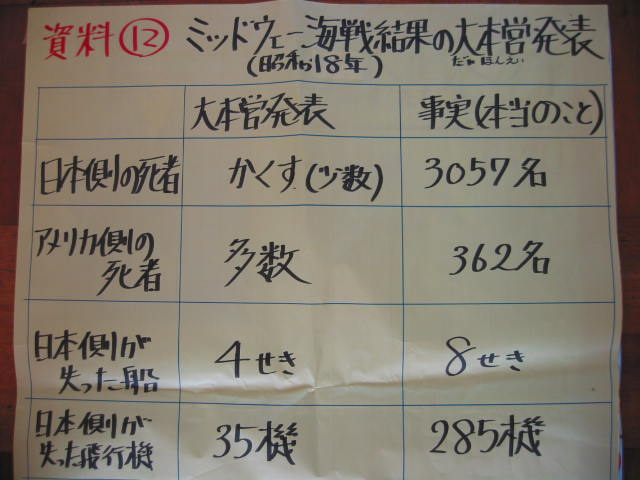 資料⑫ ミッドウェー海戦結果の大本営発表
(昭和18年) だいほんえい
大本営発表 事実(本当のこと)
日本側の死者 かくす(少数) 3057名
アメリカ側の
死者 多数 362名
日本側が
失った船 4せき 8せき
日本側が
失った飛行機 35機 285機